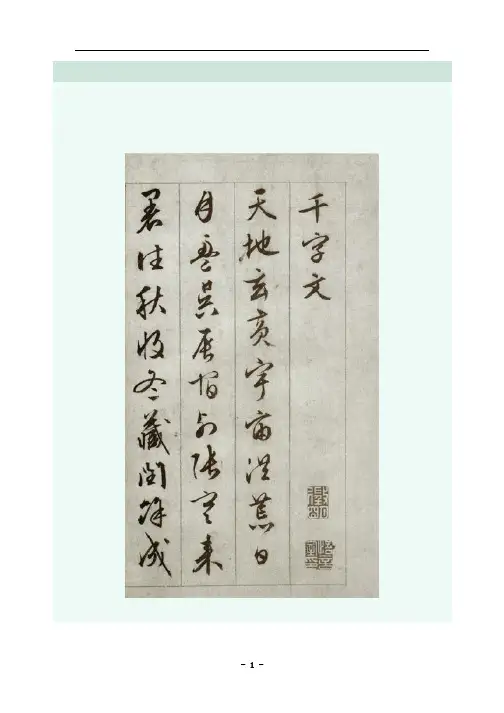 千字文
天地玄黄宇宙洪荒日
月盈昃辰宿列张寒来
暑往秋收冬藏闰馀成
- 1 -